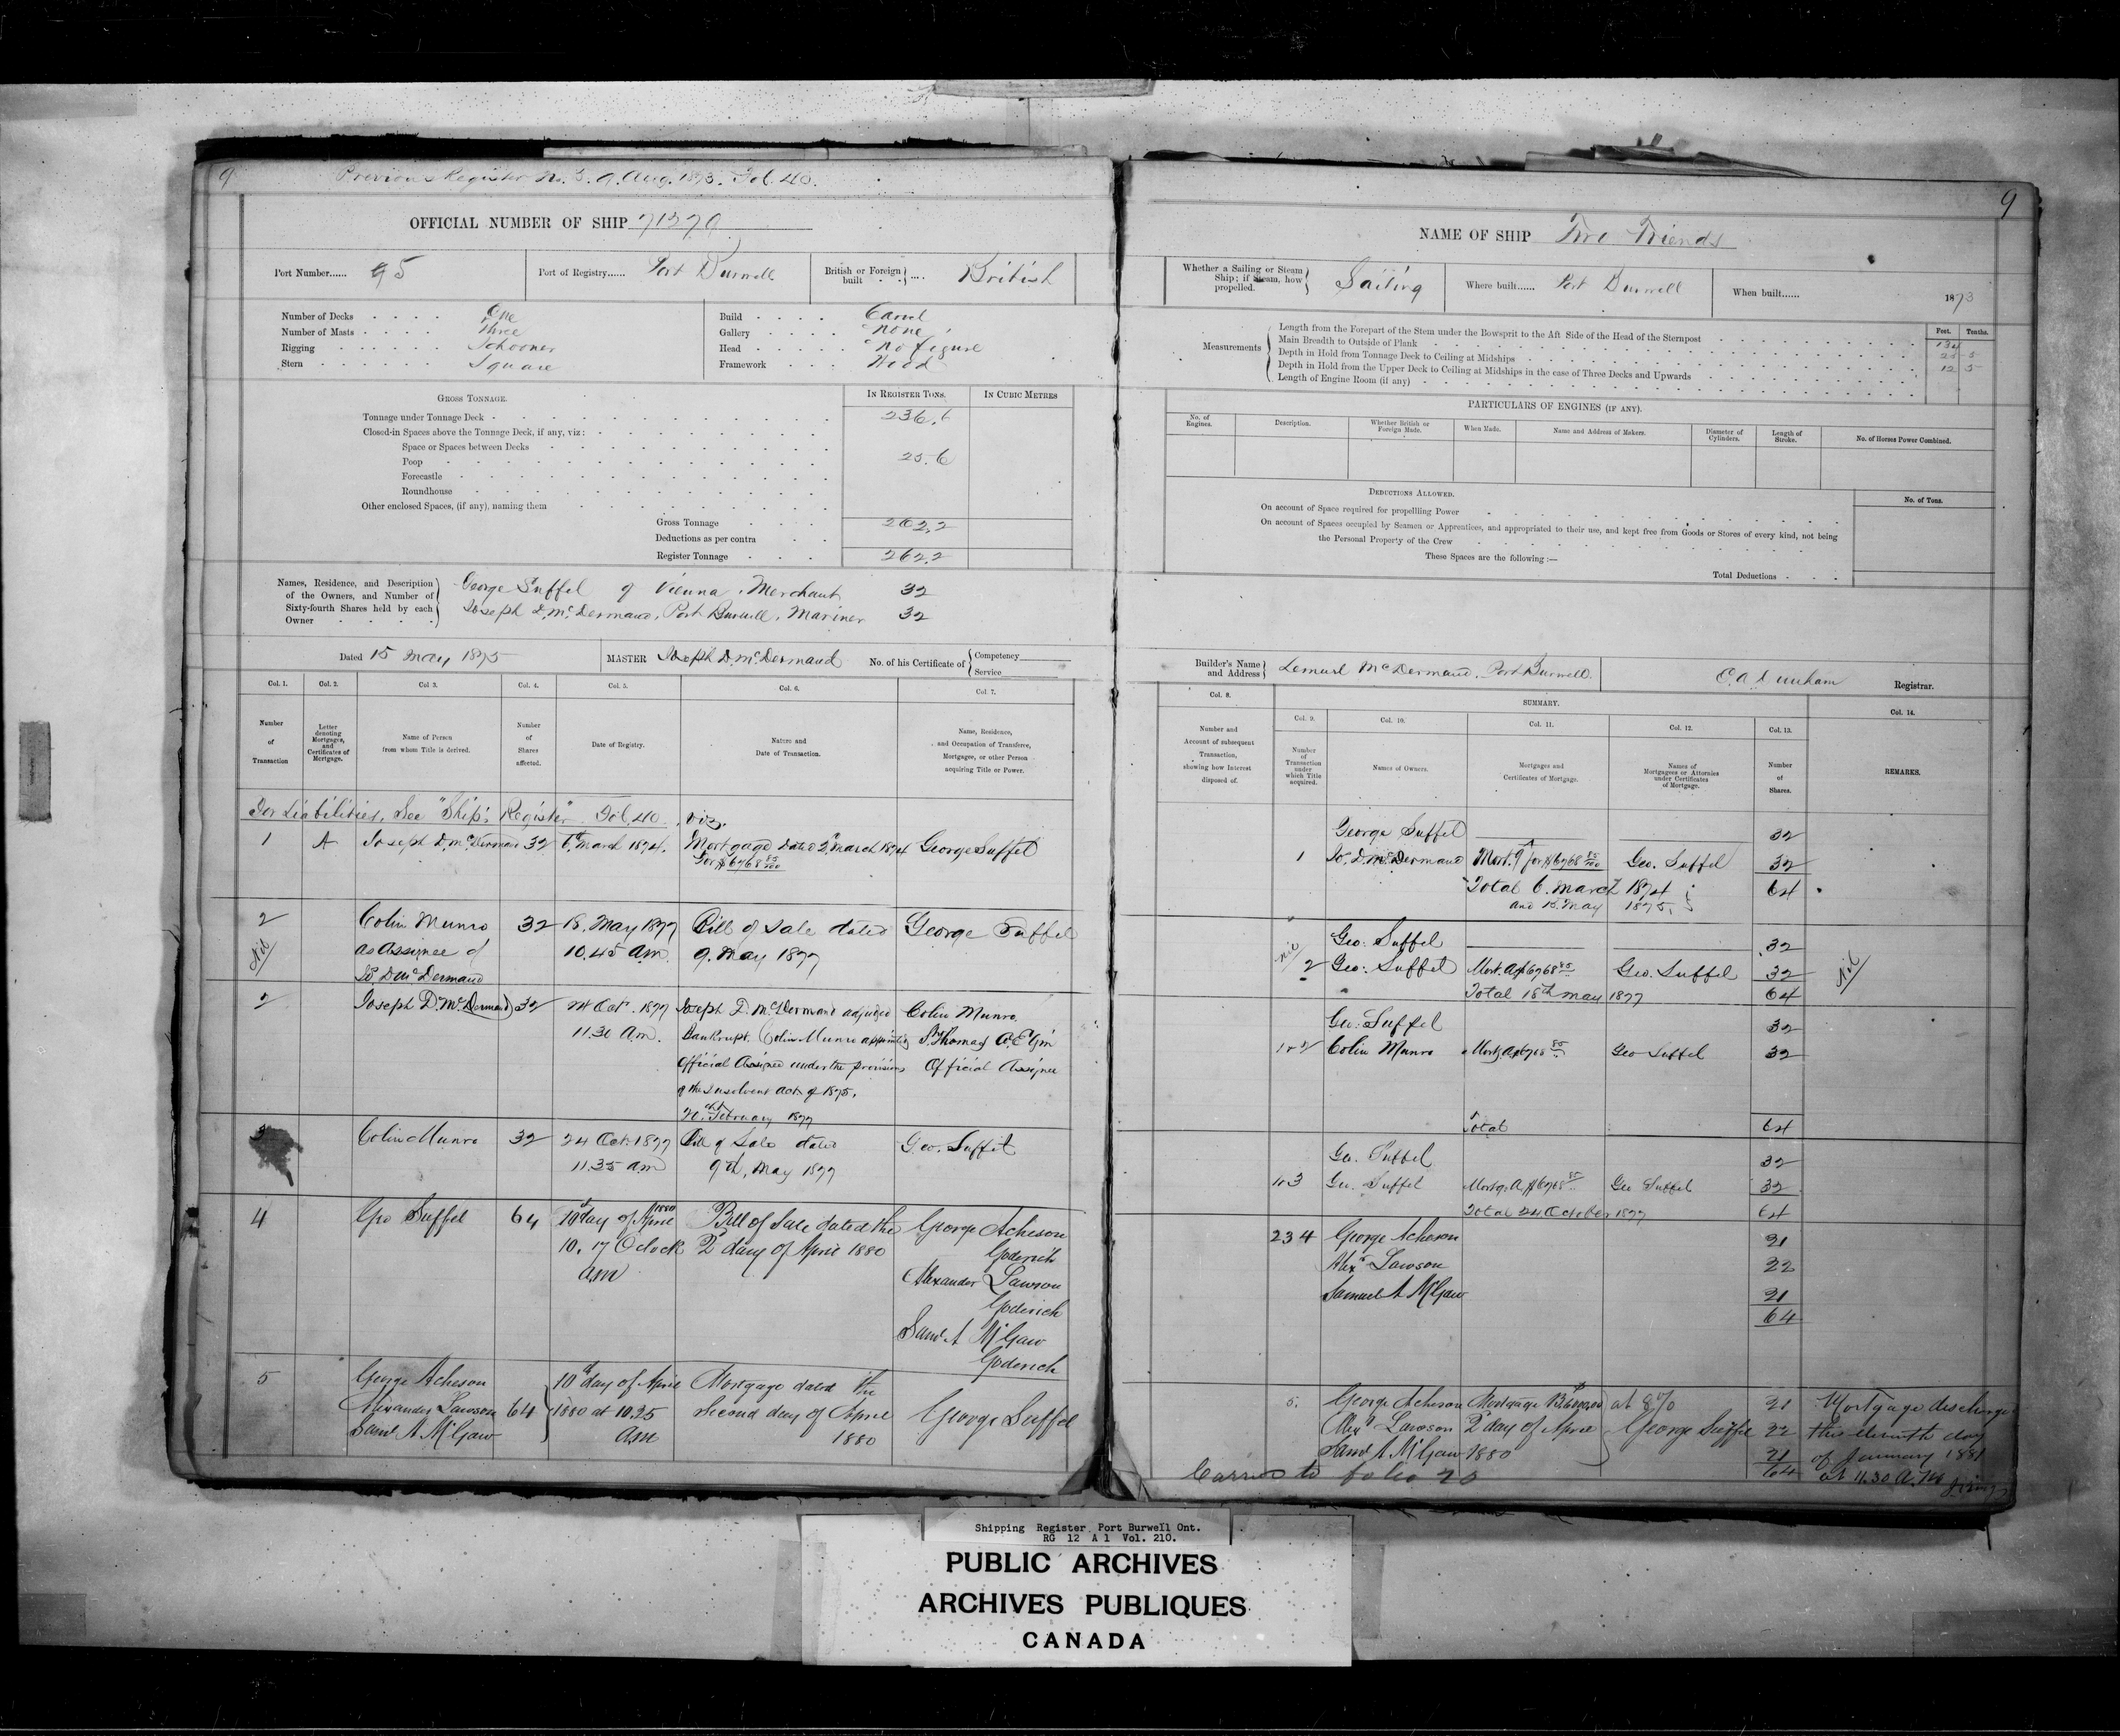 9
Previous Register No. 3. 9. Aug. 1873. Fol. 40.
OFFICIAL NUMBER OF SHIP 71279
Port Number...... 95
Port of Registry...... Port Burwell
British or Foreign built .... British
Number of Decks One
Number of Masts Three
Rigging Schooner
Stern Square
Build Carvel
Gallery None
Head No figure
Framework Wood
GROSS TONNAGE.
IN REGISTER TONS.
IN CUBIC METRES
Tonnage under Tonnage Deck 236.6
Closed-in Spaces above the Tonnage Deck, if any, viz:
Space or Spaces between Decks
Poop 25.6
Forecastle
Roundhouse
Other enclosed Spaces, (if any), naming them
Gross Tonnage 262.2
Deductions as per contra
Register Tonnage 262.2
Names, Residence, and Description
of the Owners, and Number of
Sixty-fourth Shares held by each
Owner
George Suffel of Vienna, Merchant 32
Joseph D. McDermand, Port Burwell, Mariner 32
Dated 15 May 1875
MASTER Joseph D. McDermand
No. of his Certificate of
Competency
Service
Col. 1.
Col. 2.
Col 3.
Col. 4.
Col. 5.
Col. 6.
Col 7.
Number
of
Transaction
Letter
denoting
Mortgages,
and
Certificates of
Mortgage.
Name of Person
from whom Title is derived.
Number
of
Shares
affected.
Date of Registry.
Nature and
Date of Transaction.
Name, Residence,
and Occupation of Transferee,
Mortgagee, or other Person
acquiring Title or Power.
For Liabilities, See "Ship's Register" Fol. 40, viz.
1 A Joseph D. McDermand 32 6 March 1874. Mortgage dated 2 March 1874 George Suffel
for $6768 85/100
2 Colin Munro 32 18. May 1877 Bill of Sale dated George Suffel
Nil as Assignee of 10.45 am. 9. May 1877
Jo. D McDermand
2 Joseph D. McDermand 32 24 Oct. 1877 Joseph D. McDermand adjudged Colin Munro
11.30 A.m. Bankrupt. Colin Munro appointed St Thomas Co. Elgin
Official Assignee under the provisions Official Assignee
of the Insolvent Act of 1875.
February 1877
3 Colin Munro 32 24 Oct. 1877 Bill of Sale dated Geo. Suffel
11.35 am 9th, May 1877
4 Geo Suffel 64 10th day of April 1880 Bill of Sale dated the George Acheson
10.17 Oclock 2d day of April 1880 Goderich
am Alexander Lawson
Goderich
Saml A McGaw
Goderich
5 George Acheson 10th day of April Mortgage dated the
Alexander Lawson 64 1880 at 10.25 second day of April George Suffel
Saml A McGaw am 1880
9
NAME OF SHIP Two Friends
Whether a Sailing or Steam
Ship; if Steam, how
propelled. Sailing
Where built...... Port Burwell
When built...... 1873
Measurements
Feet. Tenths.
Length from the Forepart of the Stem under the Bowsprit to the Aft Side of the Head of the Sternpost 134
Main Breadth to Outside of Plank 25 5
Depth in Hold from Tonnage Deck to Ceiling at Midships 12 5
Depth in Hold from the Upper Deck to Ceiling at Midships in the case of Three Decks and Upwards
Length of Engine Room (if any)
PARTICULARS OF ENGINES (IF ANY).
No. of
Engines.
Description.
Whether British or
Foreign Made.
When Made.
Name and Address of Makers.
Diameter of
Cylinders.
Length of
Stroke.
No. of Horses Power Combined.
DEDUCTIONS ALLOWED.
No. of Tons.
On account of Space required for propellling Power
On account of Spaces occupied by Seamen or Apprentices, and appropriated to their use, and kept free from Goods or Stores of every kind, not being
the Personal Property of the Crew
These Spaces are the following :—
Total Deductions
Builder's Name
and Address Lemuel McDermand, Port Burwell.
Registrar.
Col. 8.
SUMMARY.
Col. 14.
Col. 9.
Col. 10.
Col. 11.
Col. 12.
Col. 13.
Number and
Account of subsequent
Transaction,
showing how Interest
disposed of.
Number
of
Transaction
under
which Title
acquired.
Names of Owners.
Mortgages and
Certificates of Mortgage.
Names of
Mortgagees or Attornies
under Certificates
of Mortgage.
Number
of
Shares.
REMARKS.
George Suffel 32
1 Jo. D. McDermand Mort. A for $6768 85/100 Geo. Suffel 32
Total 6. March 1874 64
and 15. May 1875.
Geo. Suffel 32
Nil 2 Geo. Suffel Mort. A $6768 85 Geo. Suffel 32 Nil
Total 18th May 1877 64
Geo. Suffel 32
1 & 2 Colin Munro Mortg. A $6768 85 Geo Suffel 32
Total 64
Geo. Suffel 32
1 & 3 Geo. Suffel Mortg. A $6768 85 Geo Suffel 32
Total 24 October 1877 64
234 George Acheson 21
Alexr Lawson 22
Samuel A McGaw 21
64
5. George Acheson Mortgage B at 8% 21 Mortgage discharged
Alexr Lawson 2d day of April George Suffel 22 this eleventh day
Saml A McGaw 1880 21 of January 1881
64 at 11.30 A.M
Carried to folio 20
Shipping Register, Port Burwell Ont.
RG 12 A 1 Vol. 210.
PUBLIC ARCHIVES
ARCHIVES PUBLIQUES
CANADA